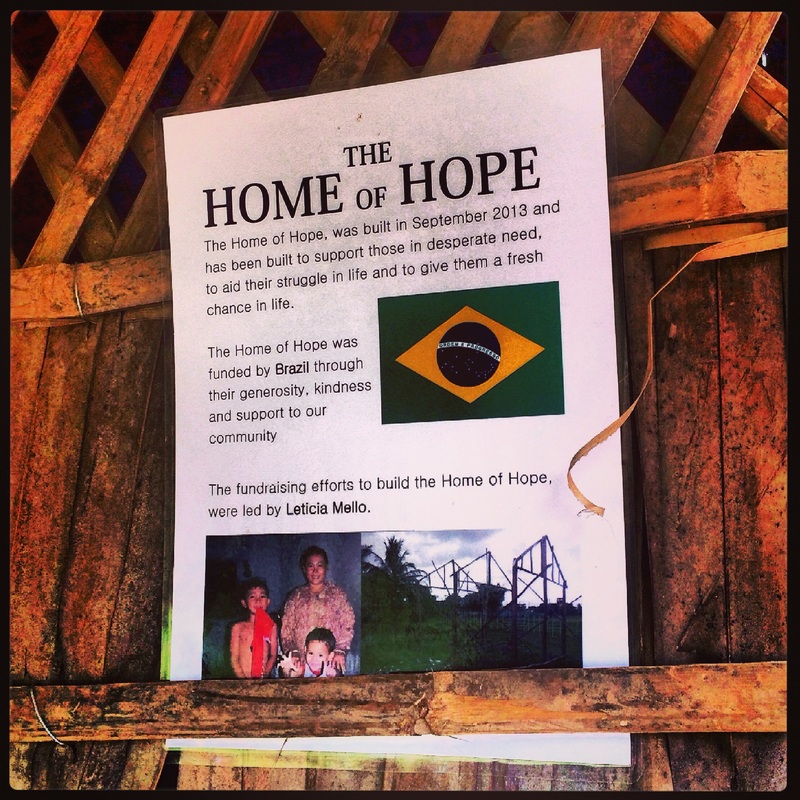 THE
HOME OF HOPE
The Home of Hope, was built in September 2013 and
has been built to support those in desperate need,
to aid their struggle in life and to give them a fresh
chance in life.
The Home of Hope was
funded by Brazil through
their generosity, kindness
and support to our
community
ORDEM E PROGRESSO
The fundraising efforts to build the Home of Hope,
were led by Leticia Mello.